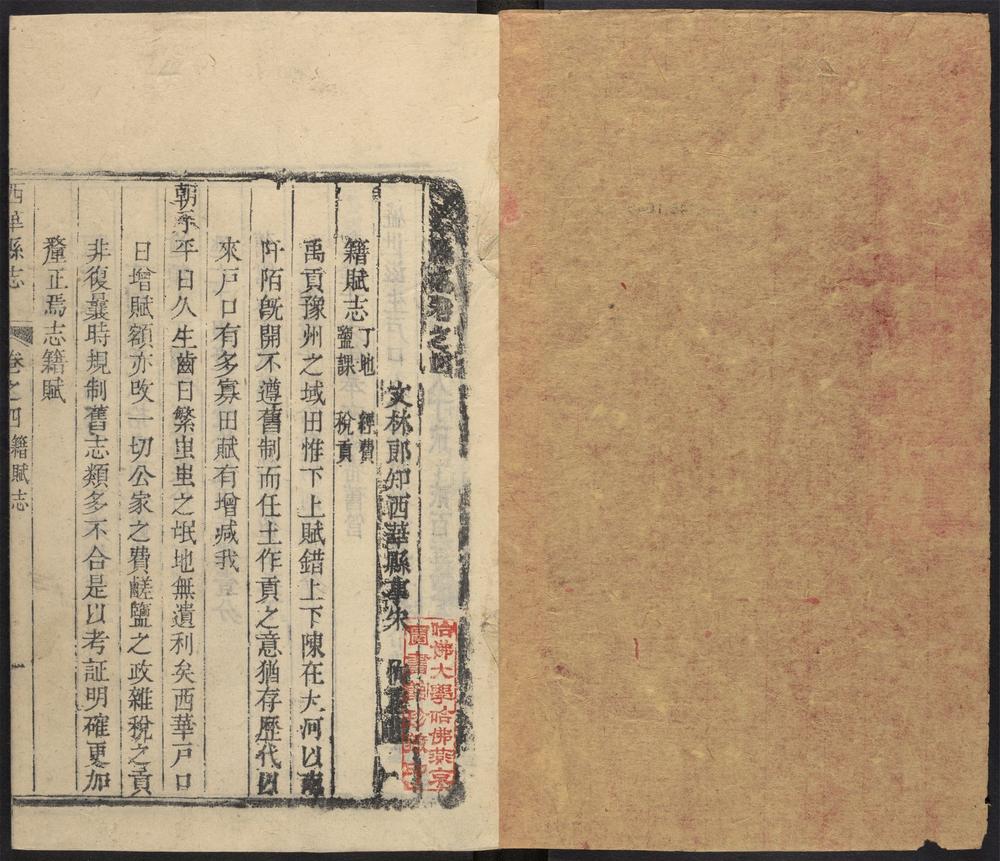 志卷之四
文林郎知西華縣事宋恂
籍賦志 丁地 經費
鹽課 稅貢
禹貢豫州之域田惟下上賦錯上下陳在大河以南
阡陌旣開不遵舊制而任土作貢之意猶存歷代以
來戸口有多寡田賦有增减我
朝承平日久生齒日繁蚩蚩之氓地無遺利矣西華戸口
日增賦額亦改一切公家之費鹺鹽之政雜稅之貢
非復曩時規制舊志類多不合是以考証明確更加
釐正焉志籍賦
西華縣志 卷之四 籍賦志 一
哈佛大學哈佛燕京
圖書館珍藏印